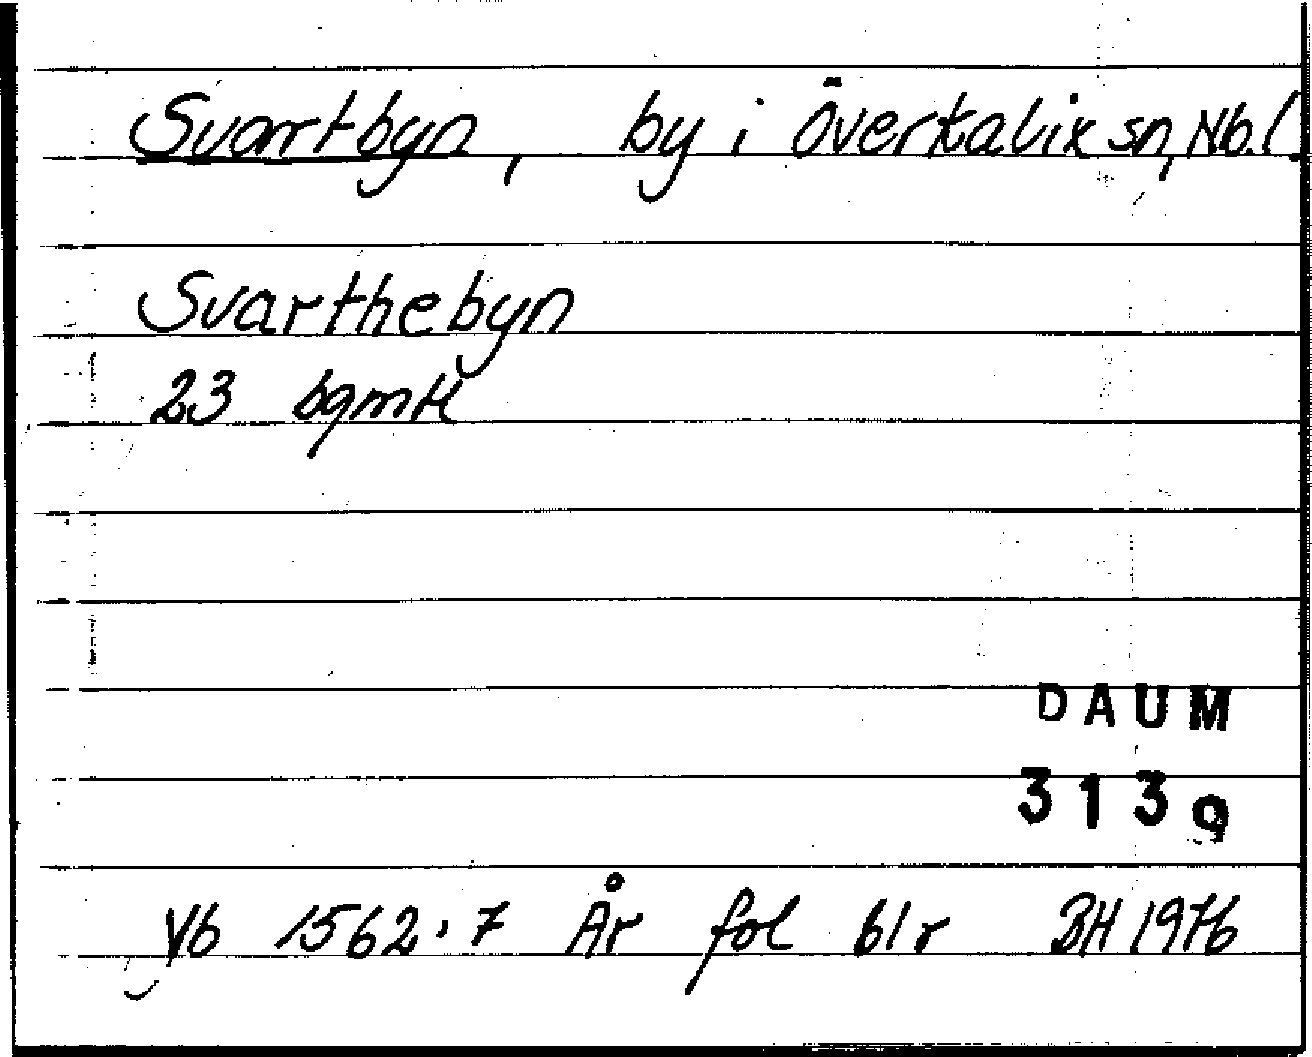 Svartbyn, by i Överkalix sn, Nb.l.
Svarthebyn
23 bgmtl
DAUM
3139
Vb 1562:7 År fol 61r BH 1976